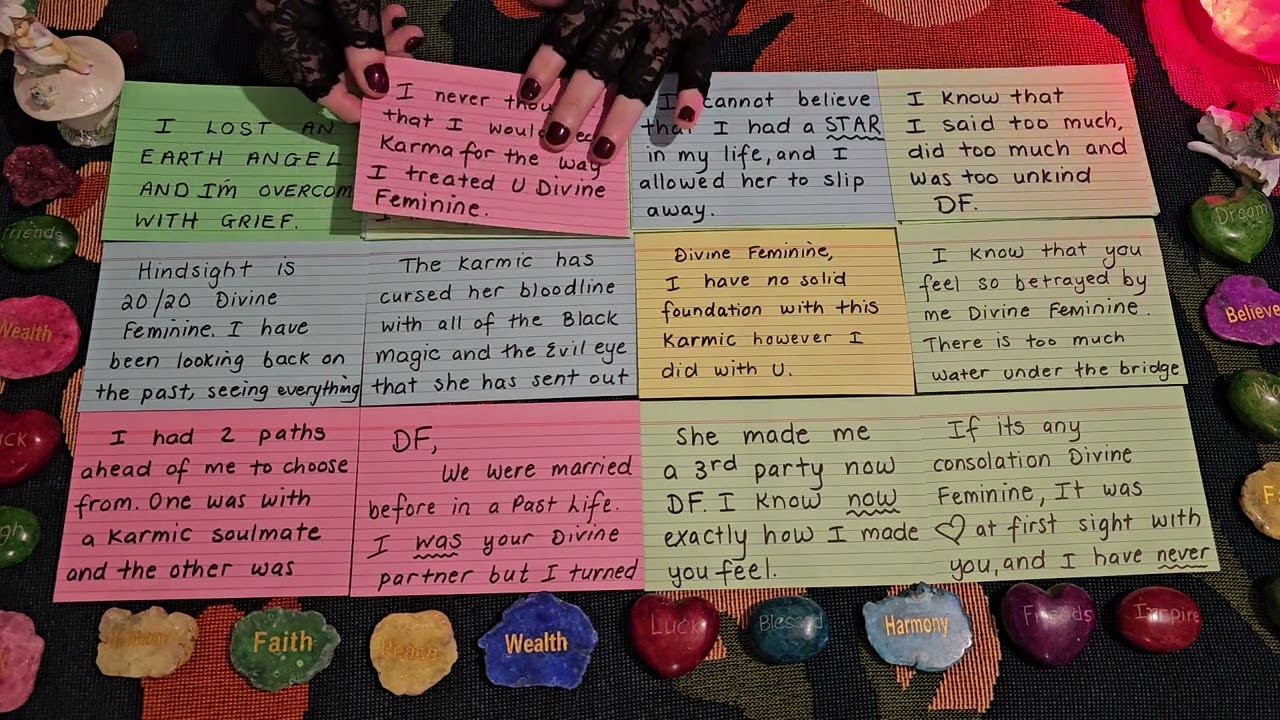 I LOST AN
EARTH ANGEL
AND I'M OVERCOM
WITH GRIEF.
I never
that I
Karma for the way
I treated U Divine
Feminine.
I cannot believe
that I had a STAR
in my life, and I
allowed her to slip
away.
I know that
I said too much,
did too much and
was too unkind
DF.
Hindsight is
20/20 Divine
Feminine. I have
been looking back on
the past, seeing everything
The Karmic has
cursed her bloodline
with all of the Black
magic and the Evil eye
that she has sent out
Divine Feminine,
I have no solid
foundation with this
Karmic however I
did with U.
I know that you
feel so betrayed by
me Divine Feminine.
There is too much
water under the bridge
I had 2 paths
ahead of me to choose
from. One was with
a Karmic soulmate
and the other was
DF,
We were married
before in a Past Life.
I was your Divine
partner but I turned
She made me
a 3rd party now
DF. I know now
exactly how I made
you feel.
If its any
consolation Divine
Feminine, It was
♡ at first sight with
you, and I have never
Friends
Wealth
Dream
Believe
Harmony
Faith
Peace
Wealth
Luck
Blessed
Harmony
Friends
Inspire